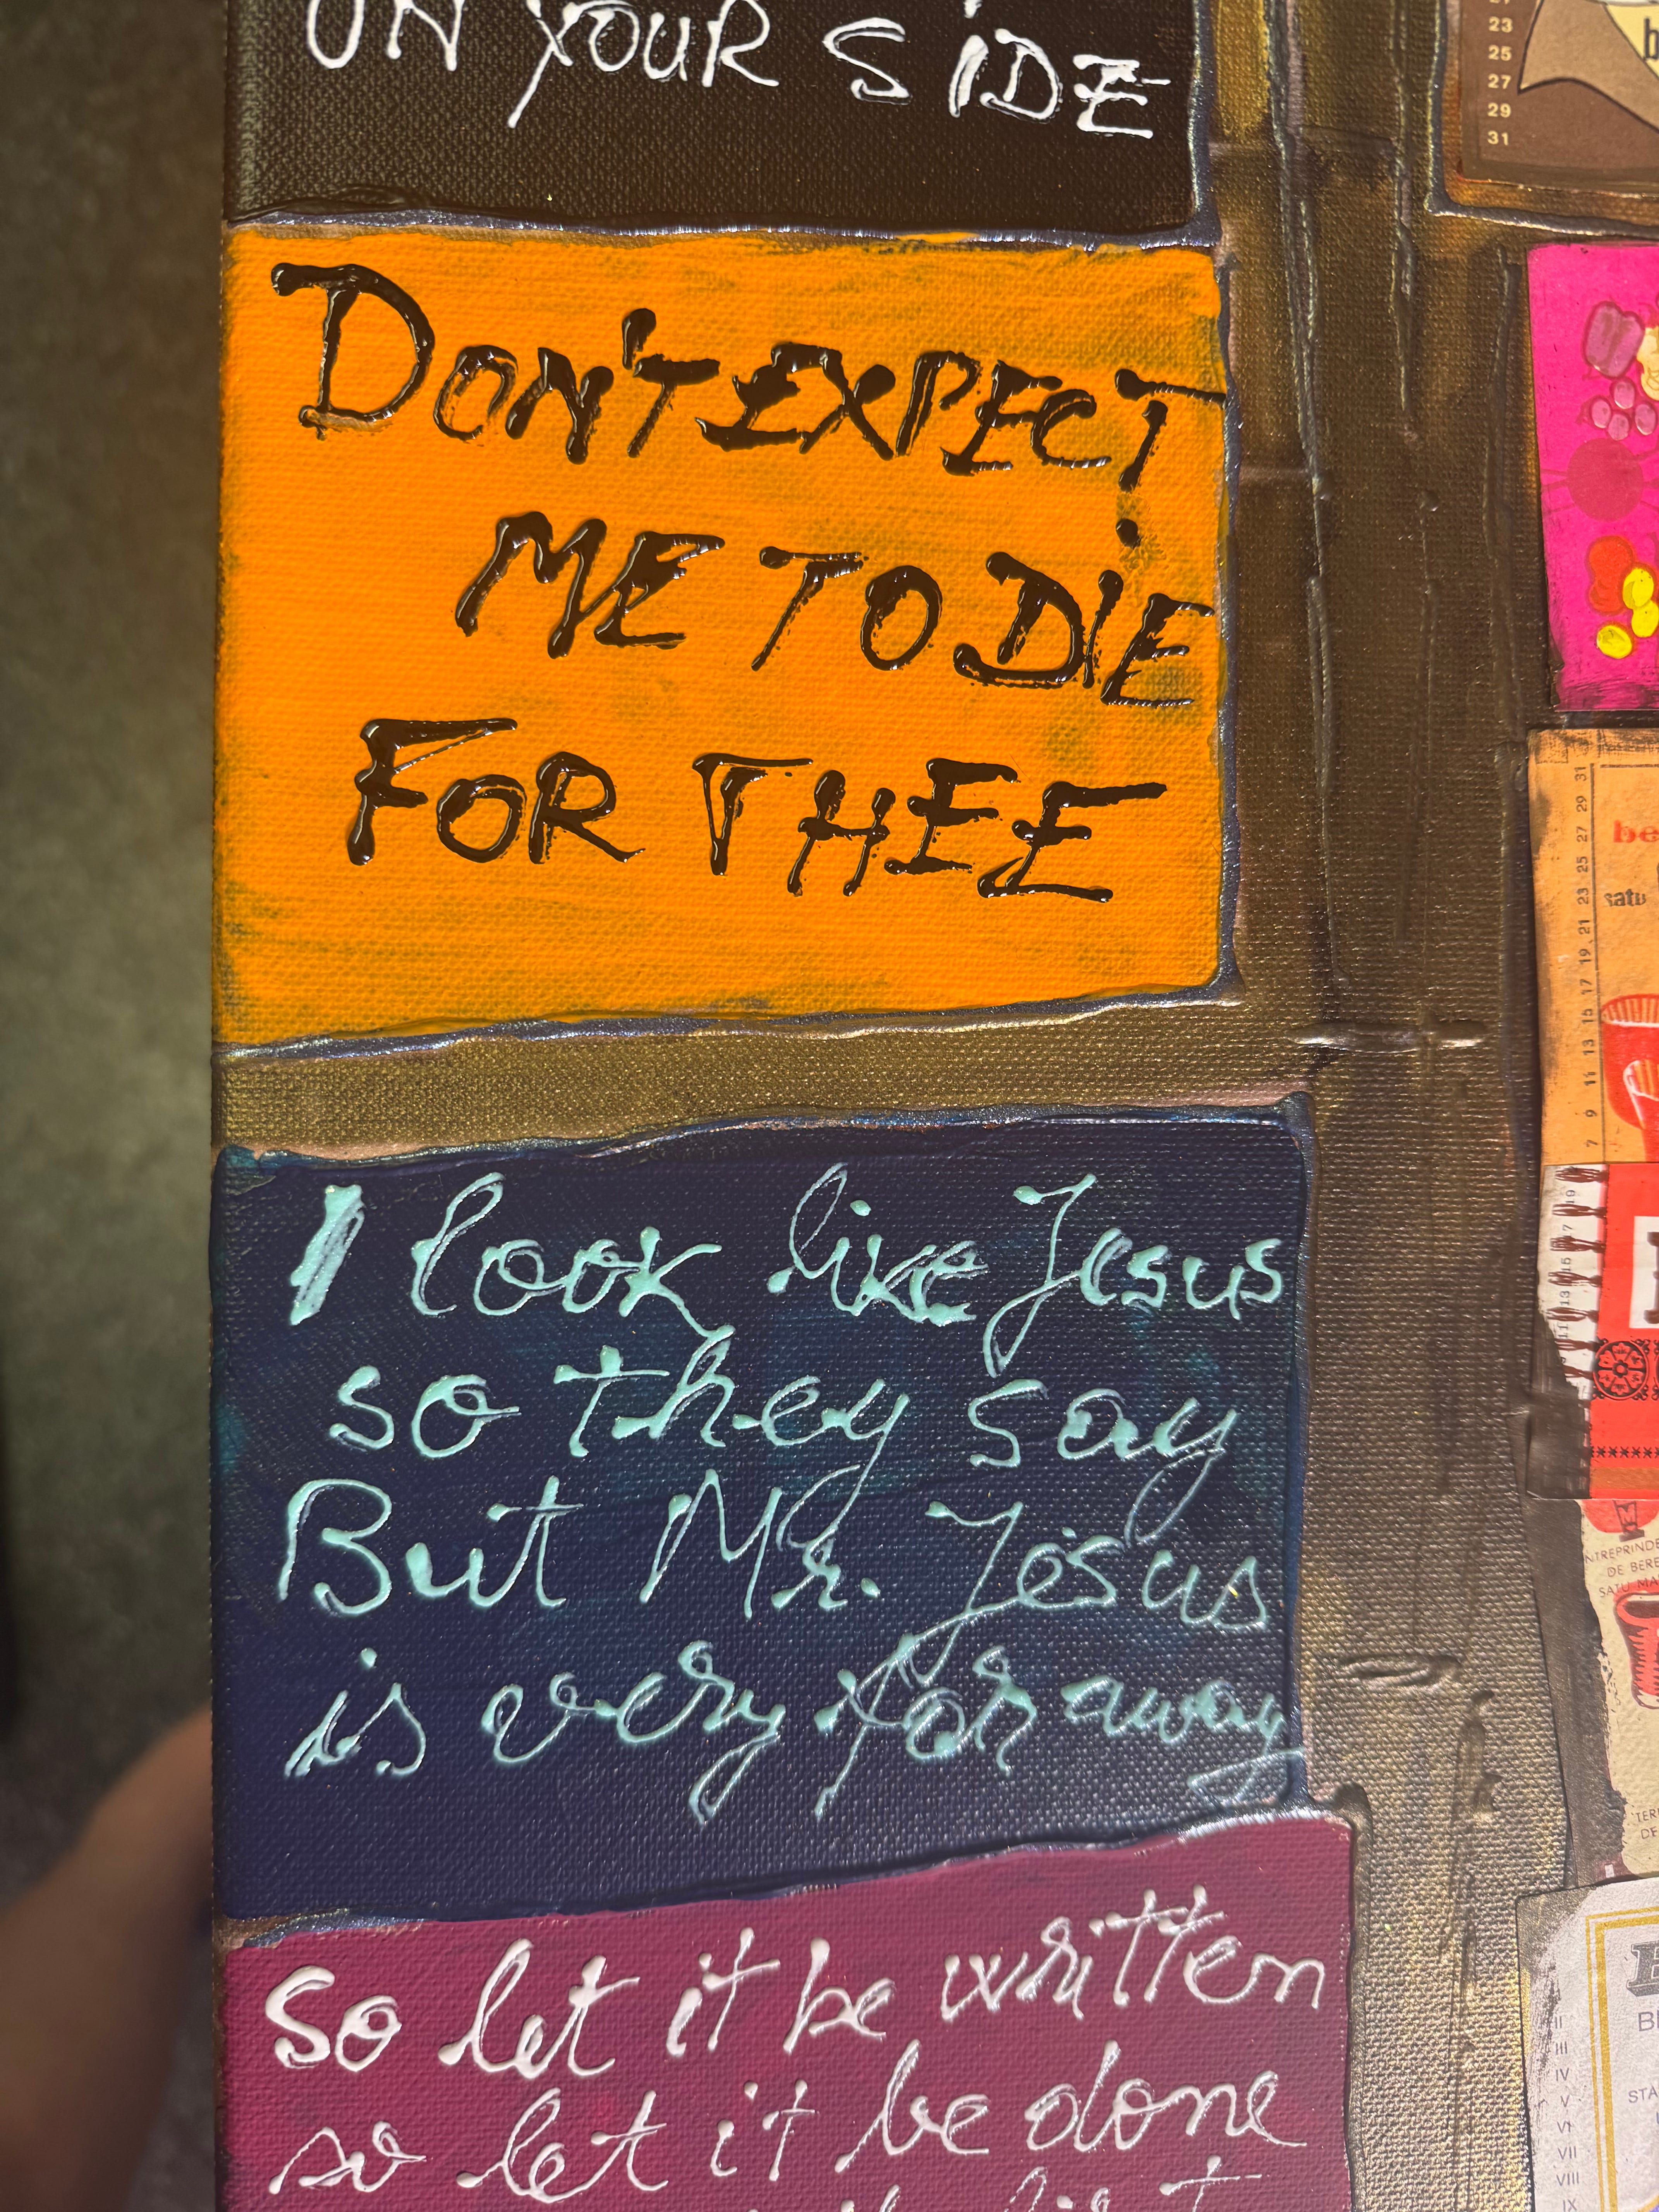 ON YOUR SIDE
DON'T EXPECT
ME TO DIE
FOR THEE
I look like Jesus
so they say
But Mr. Jesus
is very far away
So let it be written
so let it be done
23
25
27
29
31
31
29
27
25
23
21
19
17
15
13
11
9
7
be
satu
19
17
15
13
11
DE BERE
SATU MA
II
III
IV
V
VI
VII
VIII
IX
STA